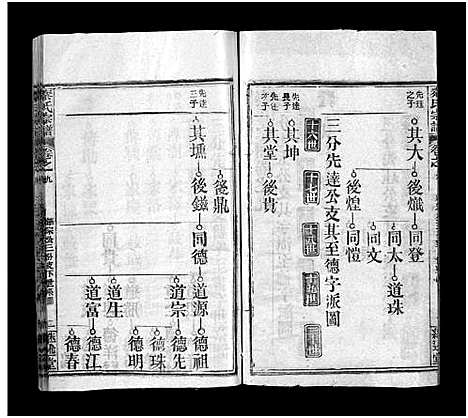 氏宗譜
先達之子
其大
後熾
同登
同太
道珠
同文
後煌
同愷
三分先達公支其至德字派圖
十六世
十七世
十八世
十九世
二十世
先達長子
其坤
先達才子
其堂
後貴
氏宗譜
卷之九
先達三子
其壎
後鼎
後鎡
同德
道源
德祖
道宗
德先
德珠
德明
道生
道富
德江
德春